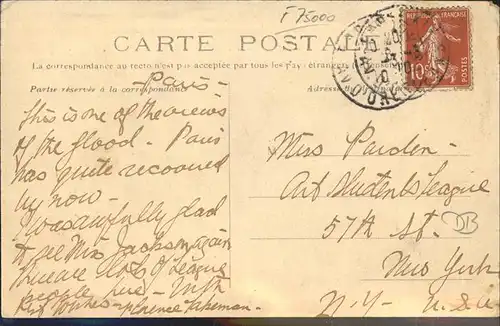 F 75000
CARTE POSTALE
La correspondance au recto n'est pas acceptée par tous les pays étrangers
Partie réservée à la correspondance
Adresse
RÉPUBLIQUE FRANÇAISE
10c
POSTES
Paris-
This is one of the views
of the flood. Paris
has quite recovered
by now-
Was awfully glad
to see Miss Jackson again
There are lots of League
people here - With
best wishes - Florence
Miss Pardon-
Art Student's League
57th St.
DB
New York
N.Y- U.S.A